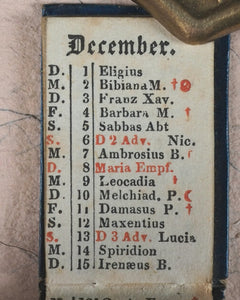 December.
D. 1 Eligius
M. 2 Bibiana M. †
D. 3 Franz Xav.
F. 4 Barbara M. †
S. 5 Sabbas Abt
S. 6 D 2 Adv. Nic.
M. 7 Ambrosius B.
D. 8 Maria Empf.
M. 9 Leocadia †
D. 10 Melchiad. P. ☾
F. 11 Damasus P. †
S. 12 Maxentius
S. 13 D 3 Adv. Lucia
M. 14 Spiridion
D. 15 Irenæus B.